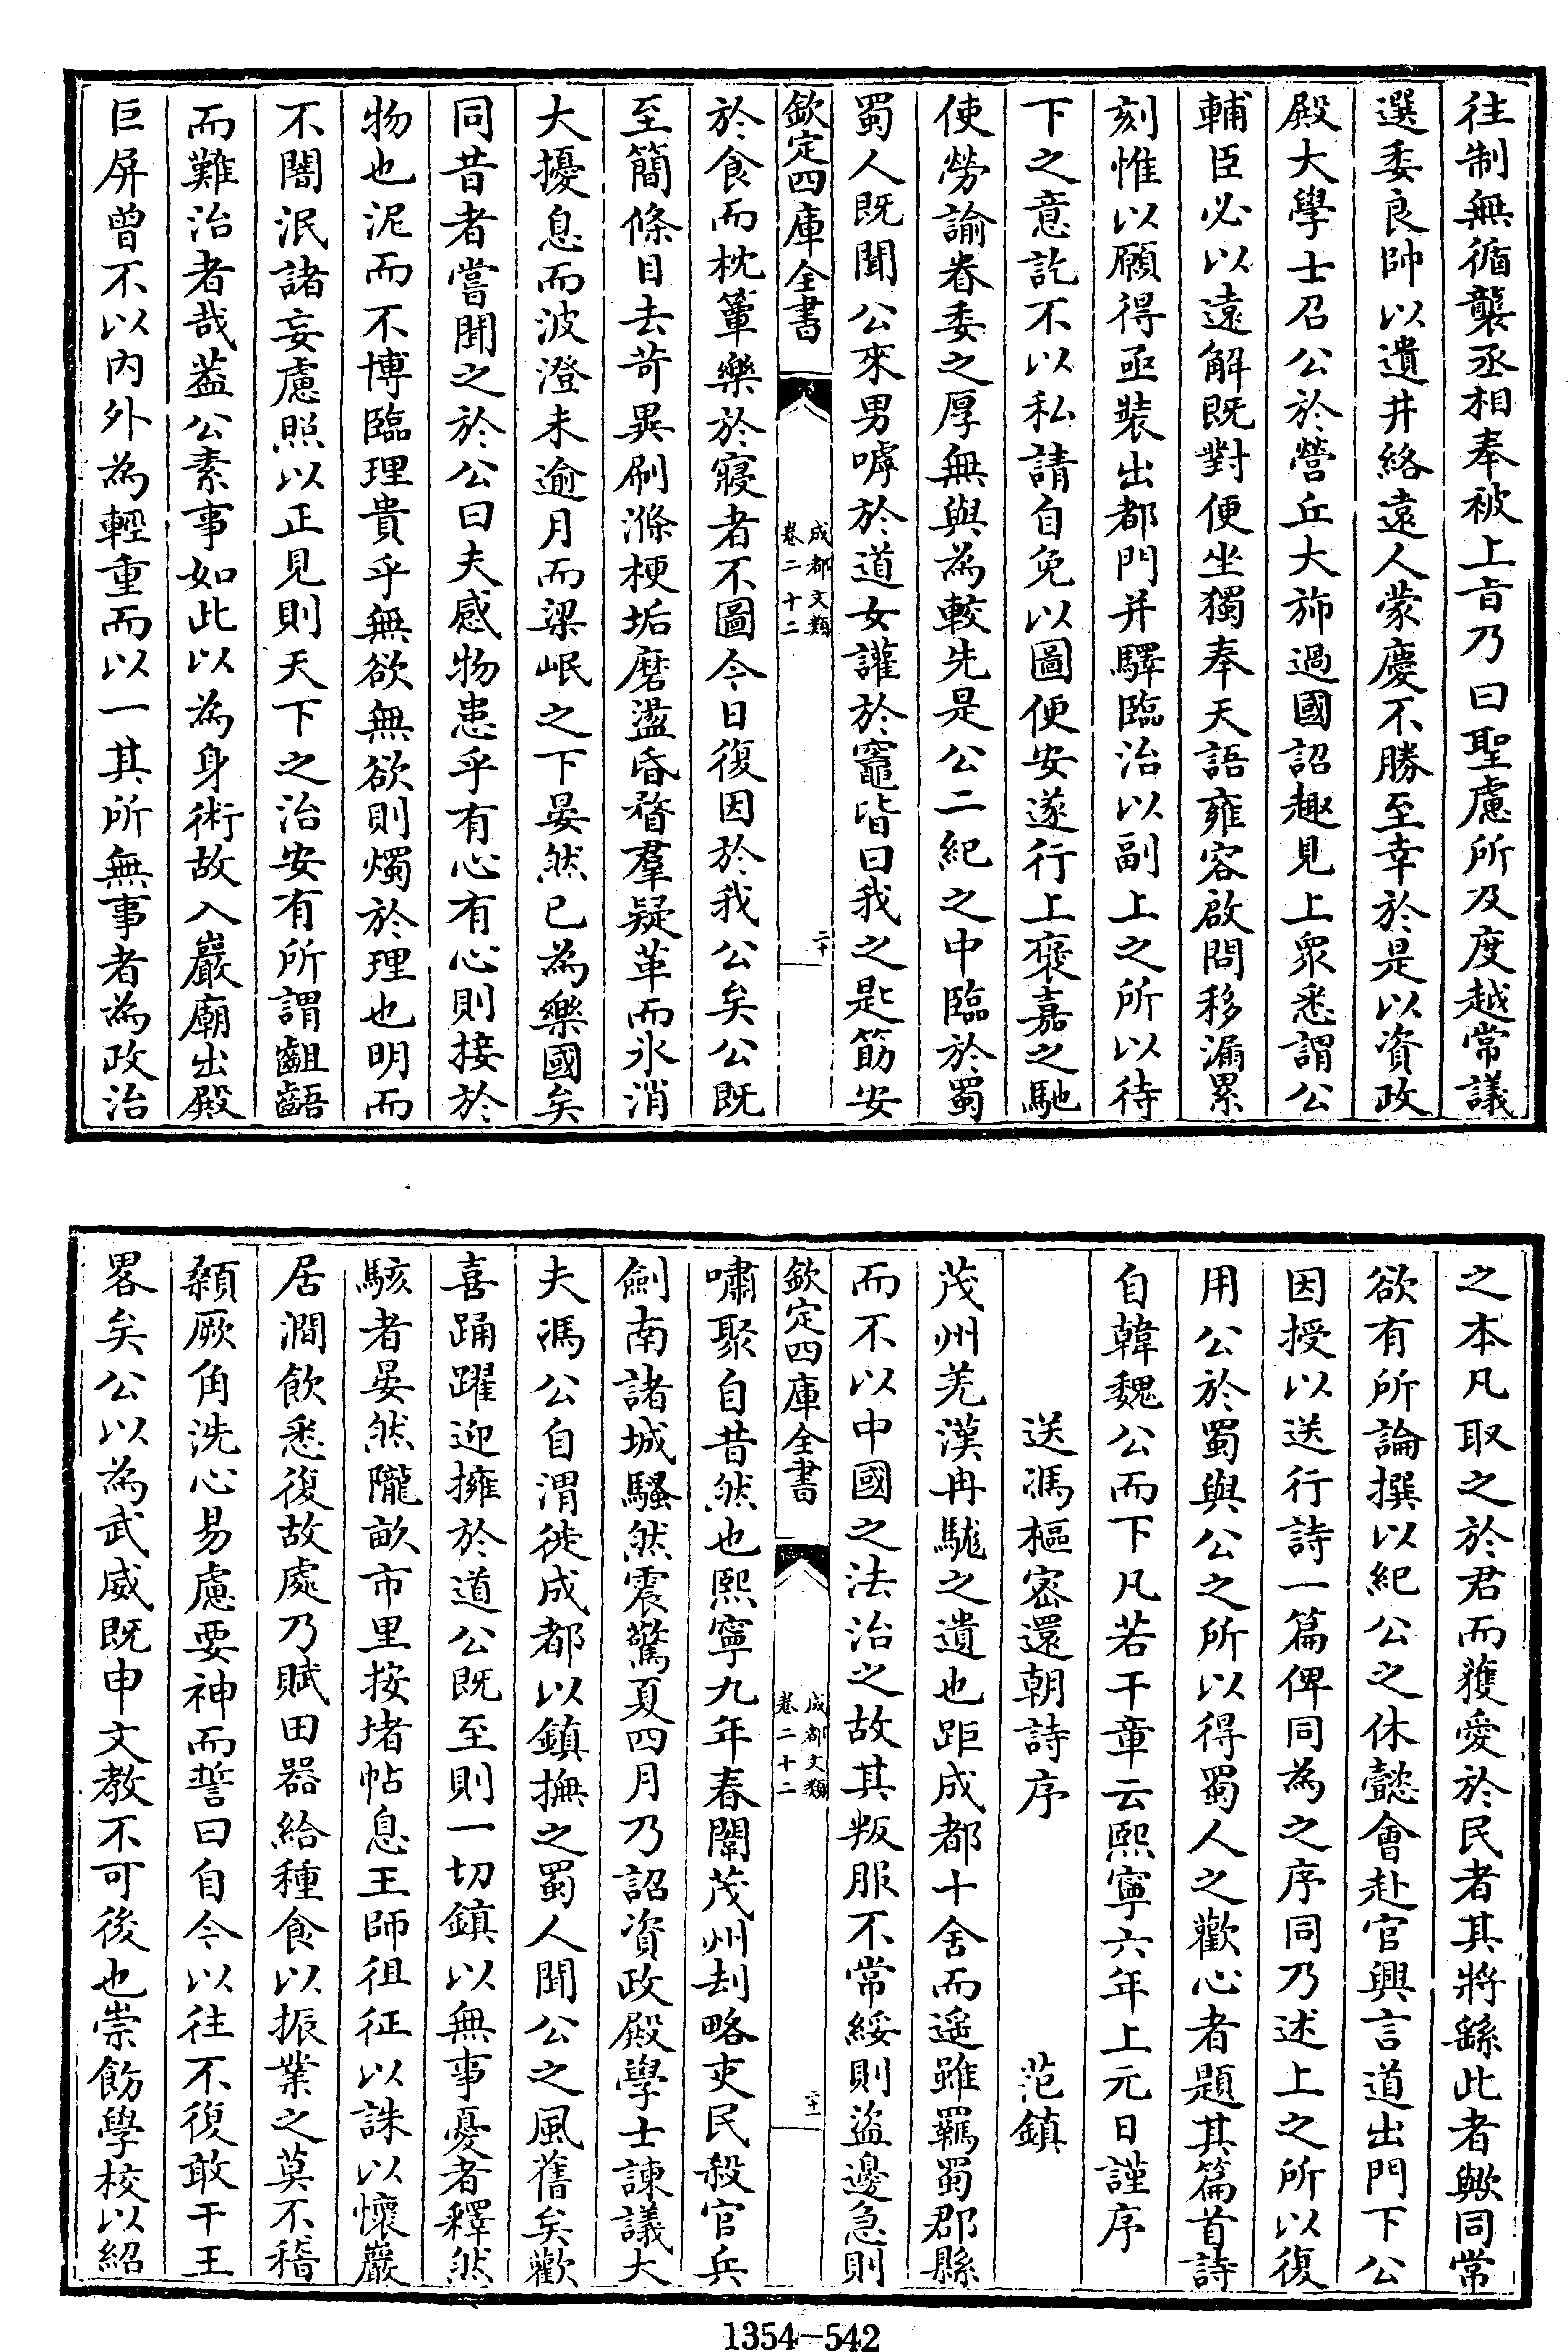 往制無循襲丞相奉被上旨乃曰聖慮所及度越常議
選委良帥以遺井絡遠人蒙慶不勝至幸於是以資政
殿大學士召公於營丘大斾過國詔趣見上衆悉謂公
輔臣必以遠解既對便坐獨奉天語雍容啟問移漏累
刻惟以願得亟裝出都門并驛臨治以副上之所以待
下之意訖不以私請自免以圖便安遂行上褒嘉之馳
使勞諭眷委之厚無與為較先是公二紀之中臨於蜀
蜀人既聞公來男嘑於道女讙於竈皆曰我之匙筯安
欽定四庫全書
成都文類
卷二十二
二十
於食而枕簟樂於寢者不圖今日復因於我公矣公既
至簡條目去苛異刷滌梗垢磨盪昏瞀羣疑革而氷消
大擾息而波澄未逾月而梁岷之下晏然已為樂國矣
同昔者嘗聞之於公曰夫感物患乎有心有心則接於
物也泥而不博臨理貴乎無欲無欲則燭於理也明而
不闇泯諸妄慮照以正見則天下之治安有所謂齟齬
而難治者哉葢公素事如此以為身術故入巖廟出殿
巨屏曾不以内外為輕重而以一其所無事者為政治
之本凡取之於君而獲愛於民者其將繇此者歟同常
欲有所論撰以紀公之休懿會赴官興言道出門下公
因授以送行詩一篇俾同為之序同乃述上之所以復
用公於蜀與公之所以得蜀人之歡心者題其篇首詩
自韓魏公而下凡若干章云熙寧六年上元日謹序
送馮樞密還朝詩序　范鎮
茂州羌漢冉駹之遺也距成都十舍而遥雖羈蜀郡縣
而不以中國之法治之故其叛服不常綏則盜邊急則
欽定四庫全書
成都文類
卷二十二
二十一
嘯聚自昔然也熙寧九年春闈茂州刼略吏民殺官兵
劍南諸城騷然震驚夏四月乃詔資政殿學士諫議大
夫馮公自渭徙成都以鎮撫之蜀人聞公之風舊矣歡
喜踊躍迎擁於道公既至則一切鎮以無事憂者釋然
駭者晏然隴畝市里按堵帖息王師徂征以誅以懷巖
居澗飲悉復故處乃賦田器給種食以振業之莫不稽
顙厥角洗心易慮要神而誓曰自今以往不復敢干王
畧矣公以為武威既申文教不可後也崇飭學校以紹
1354-542